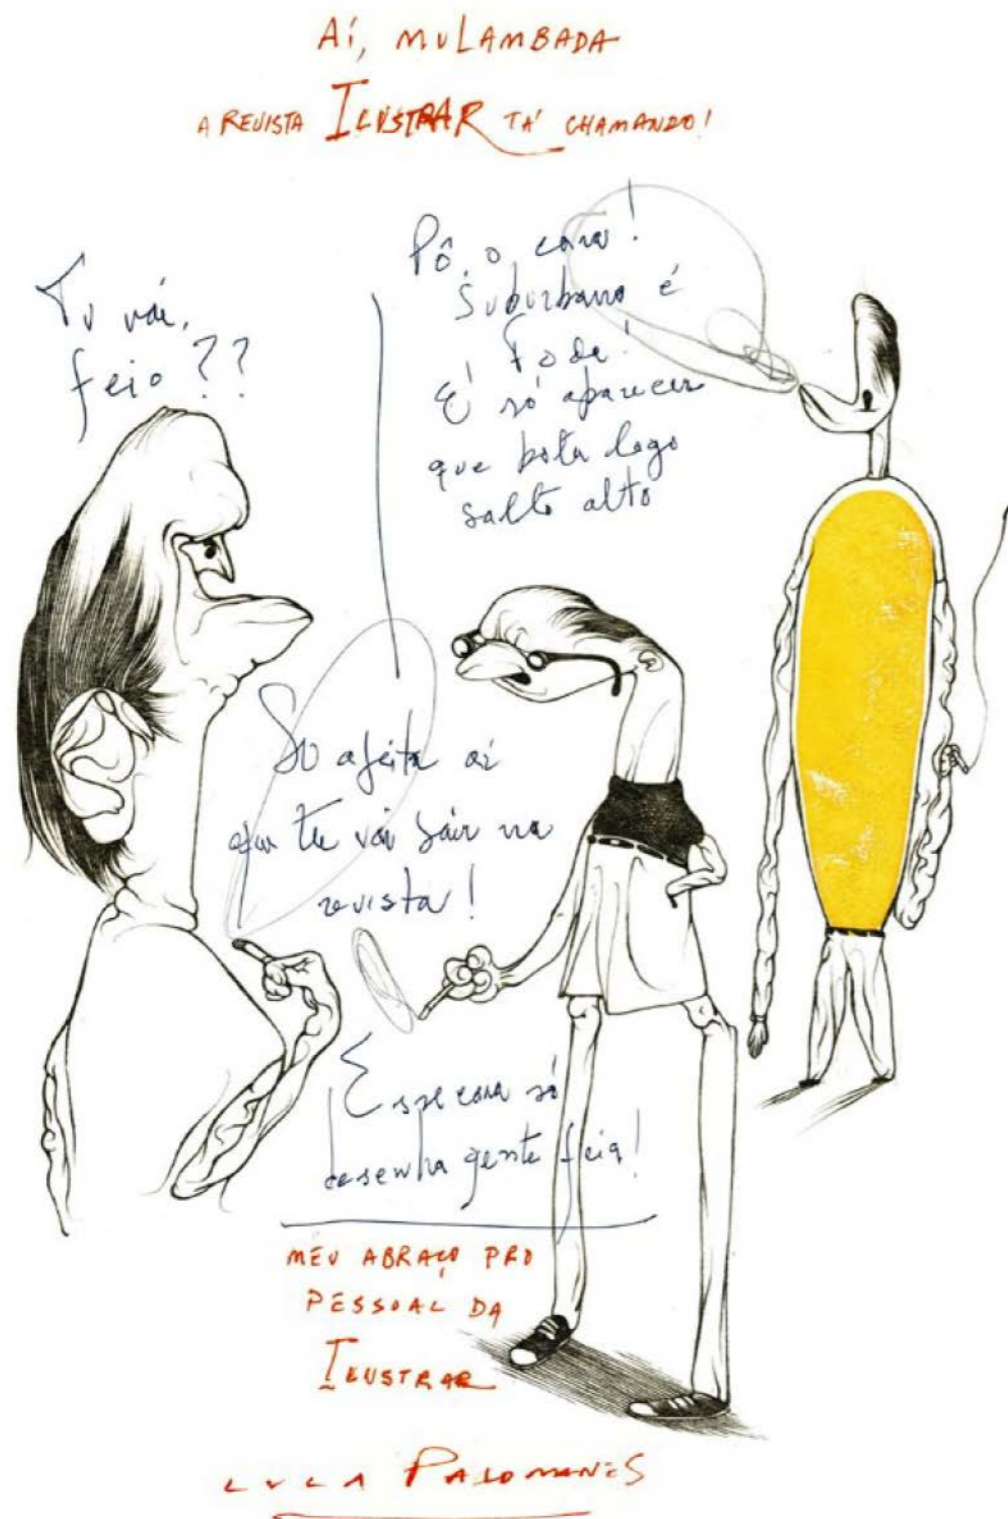 Aí, MULAMBADA
A REVISTA ILUSTRAR TÁ CHAMANDO!
Tu vai,
feio??
Pô, o cara!
Suburbano é
Foda!
É só aparecer
que bota logo
salto alto
Se ajeita aí
que tu vai sair na
revista!
Esse cara só
desenha gente feia!
MEU ABRAÇO PRO
PESSOAL DA
ILUSTRAR
LULA PALOMANES